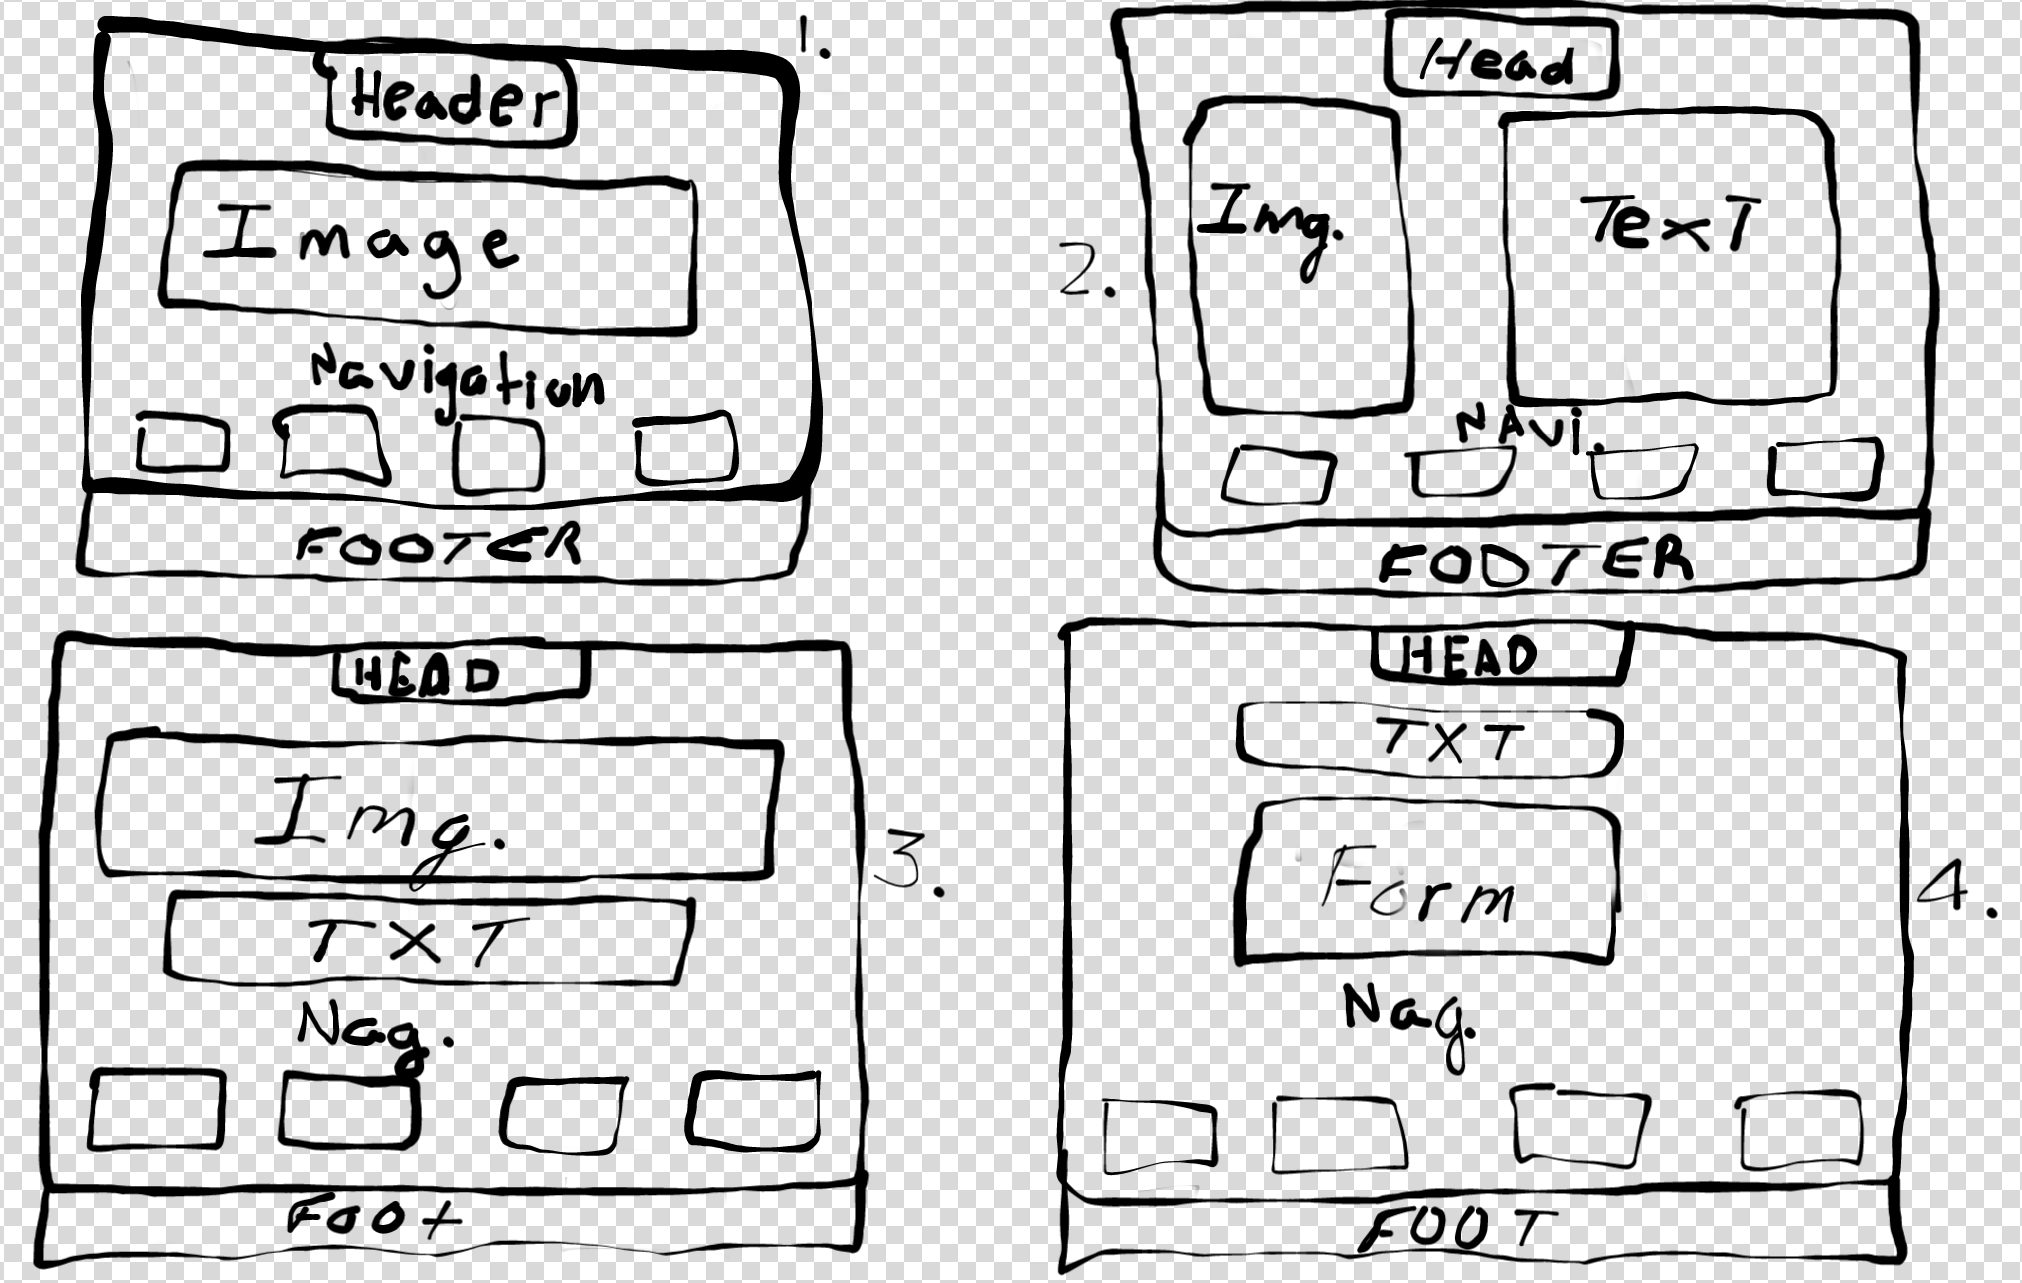 1.
Header
Image
Navigation
FOOTER
2.
Head
Img.
Text
NAvi.
FOOTER
3.
HEAD
Img.
TXT
Nag.
Foot
4.
HEAD
TXT
Form
Nag.
FOOT